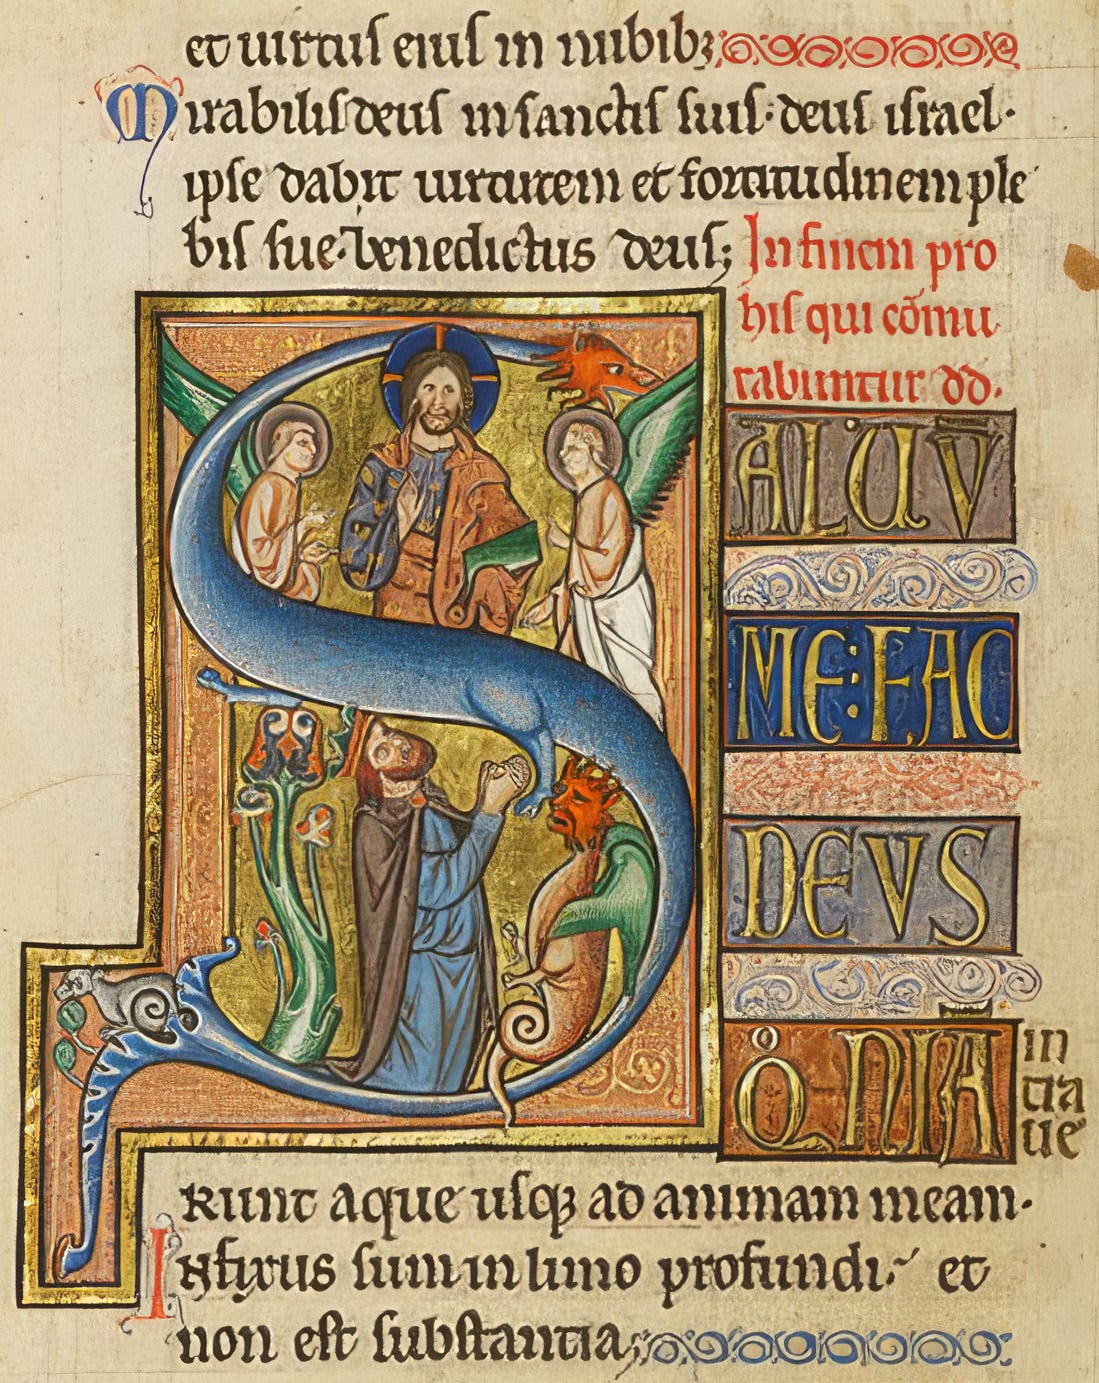 et uirtus eius in nubibꝫ
Mirabilis deus in sanctis suis: deus israel·
ipse dabit uirtutem et fortitudinem ple
bis sue· benedictus deus;
In finem pro
his qui cōmu
tabuntur dd̄·
SALUV̄
ME: FAC
DEVS
QͦNIĀ
in
tra
ue
runt aque usqꝫ ad animam meam·
Infixus sum in limo profundi· et
non est substantia;